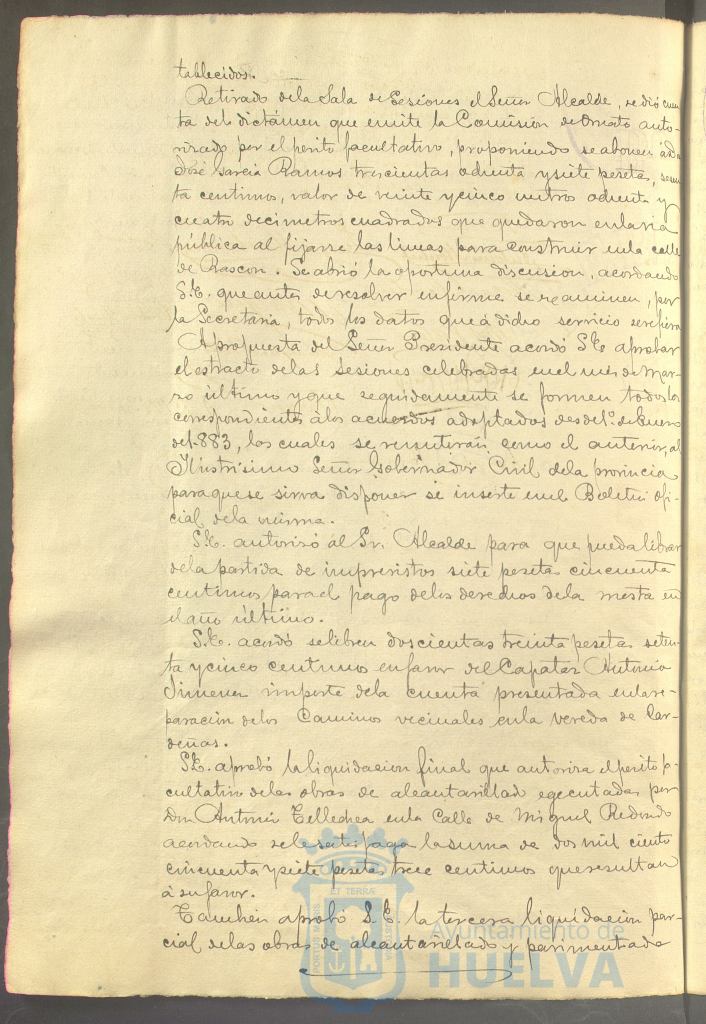 tablecidos.
Retirado dela Sala de Sesiones el Señor Alcalde, se dió cuen
ta del dictámen que emite la Comision de Ornato auto-
rizado por el perito facultativo, proponiendo se abonen á Dn
José Garcia Ramos trescientas ochenta y siete pesetas, sesen
ta centimos, valor de veinte y cinco metros ochenta y
cuatro decimetros cuadrados que quedaron en la via
pública al fijarse las lineas para construir en la calle
de Rascon. Se abrió la oportuna discusion, acordando
S.E. que antes de resolver en firme se reasuman, por
la Secretaria, todos los datos que á dicho servicio se refieran
A propuesta del Señor Presidente acordó S.E. aprobar
el estracto de las sesiones celebradas en el mes de Mar-
zo último y que seguidamente se formen todos los
correspondientes á los acuerdos adoptados desde 1º. de Enero
de 1.883, los cuales se remitirán como el anterior, al
Ilustrisimo Señor Gobernador Civil de la provincia
para que se sirva disponer se inserte en el Boletin Ofi-
cial de la misma.
S.E. autorizó al Sr. Alcalde para que pueda librar
de la partida de imprevistos siete pesetas cincuenta
centimos para el pago de los derechos de la mesta en
el año último.
S.E. acordó se libren doscientas treinta pesetas seten-
ta y cinco centimos en favor del Capataz Antonio
Jimenez importe de la cuenta presentada en la re-
paración de los Caminos vecinales en la vereda de Car-
deñas.
S.E. aprobó la liquidacion final que autoriza el perito fa-
cultativo de las obras de alcantarillad egecutadas por
Don Antonio Tellechea en la Calle de Miguel Redondo
acordando se le satisfaga la suma de dos mil ciento
cincuenta y siete pesetas trece centimos que resultan
á su favor.
Tambien aprobó S.E. la tercera liquidación par-
cial de las obras de alcantarillado y pavimentado
Ayuntamiento de
HUELVA